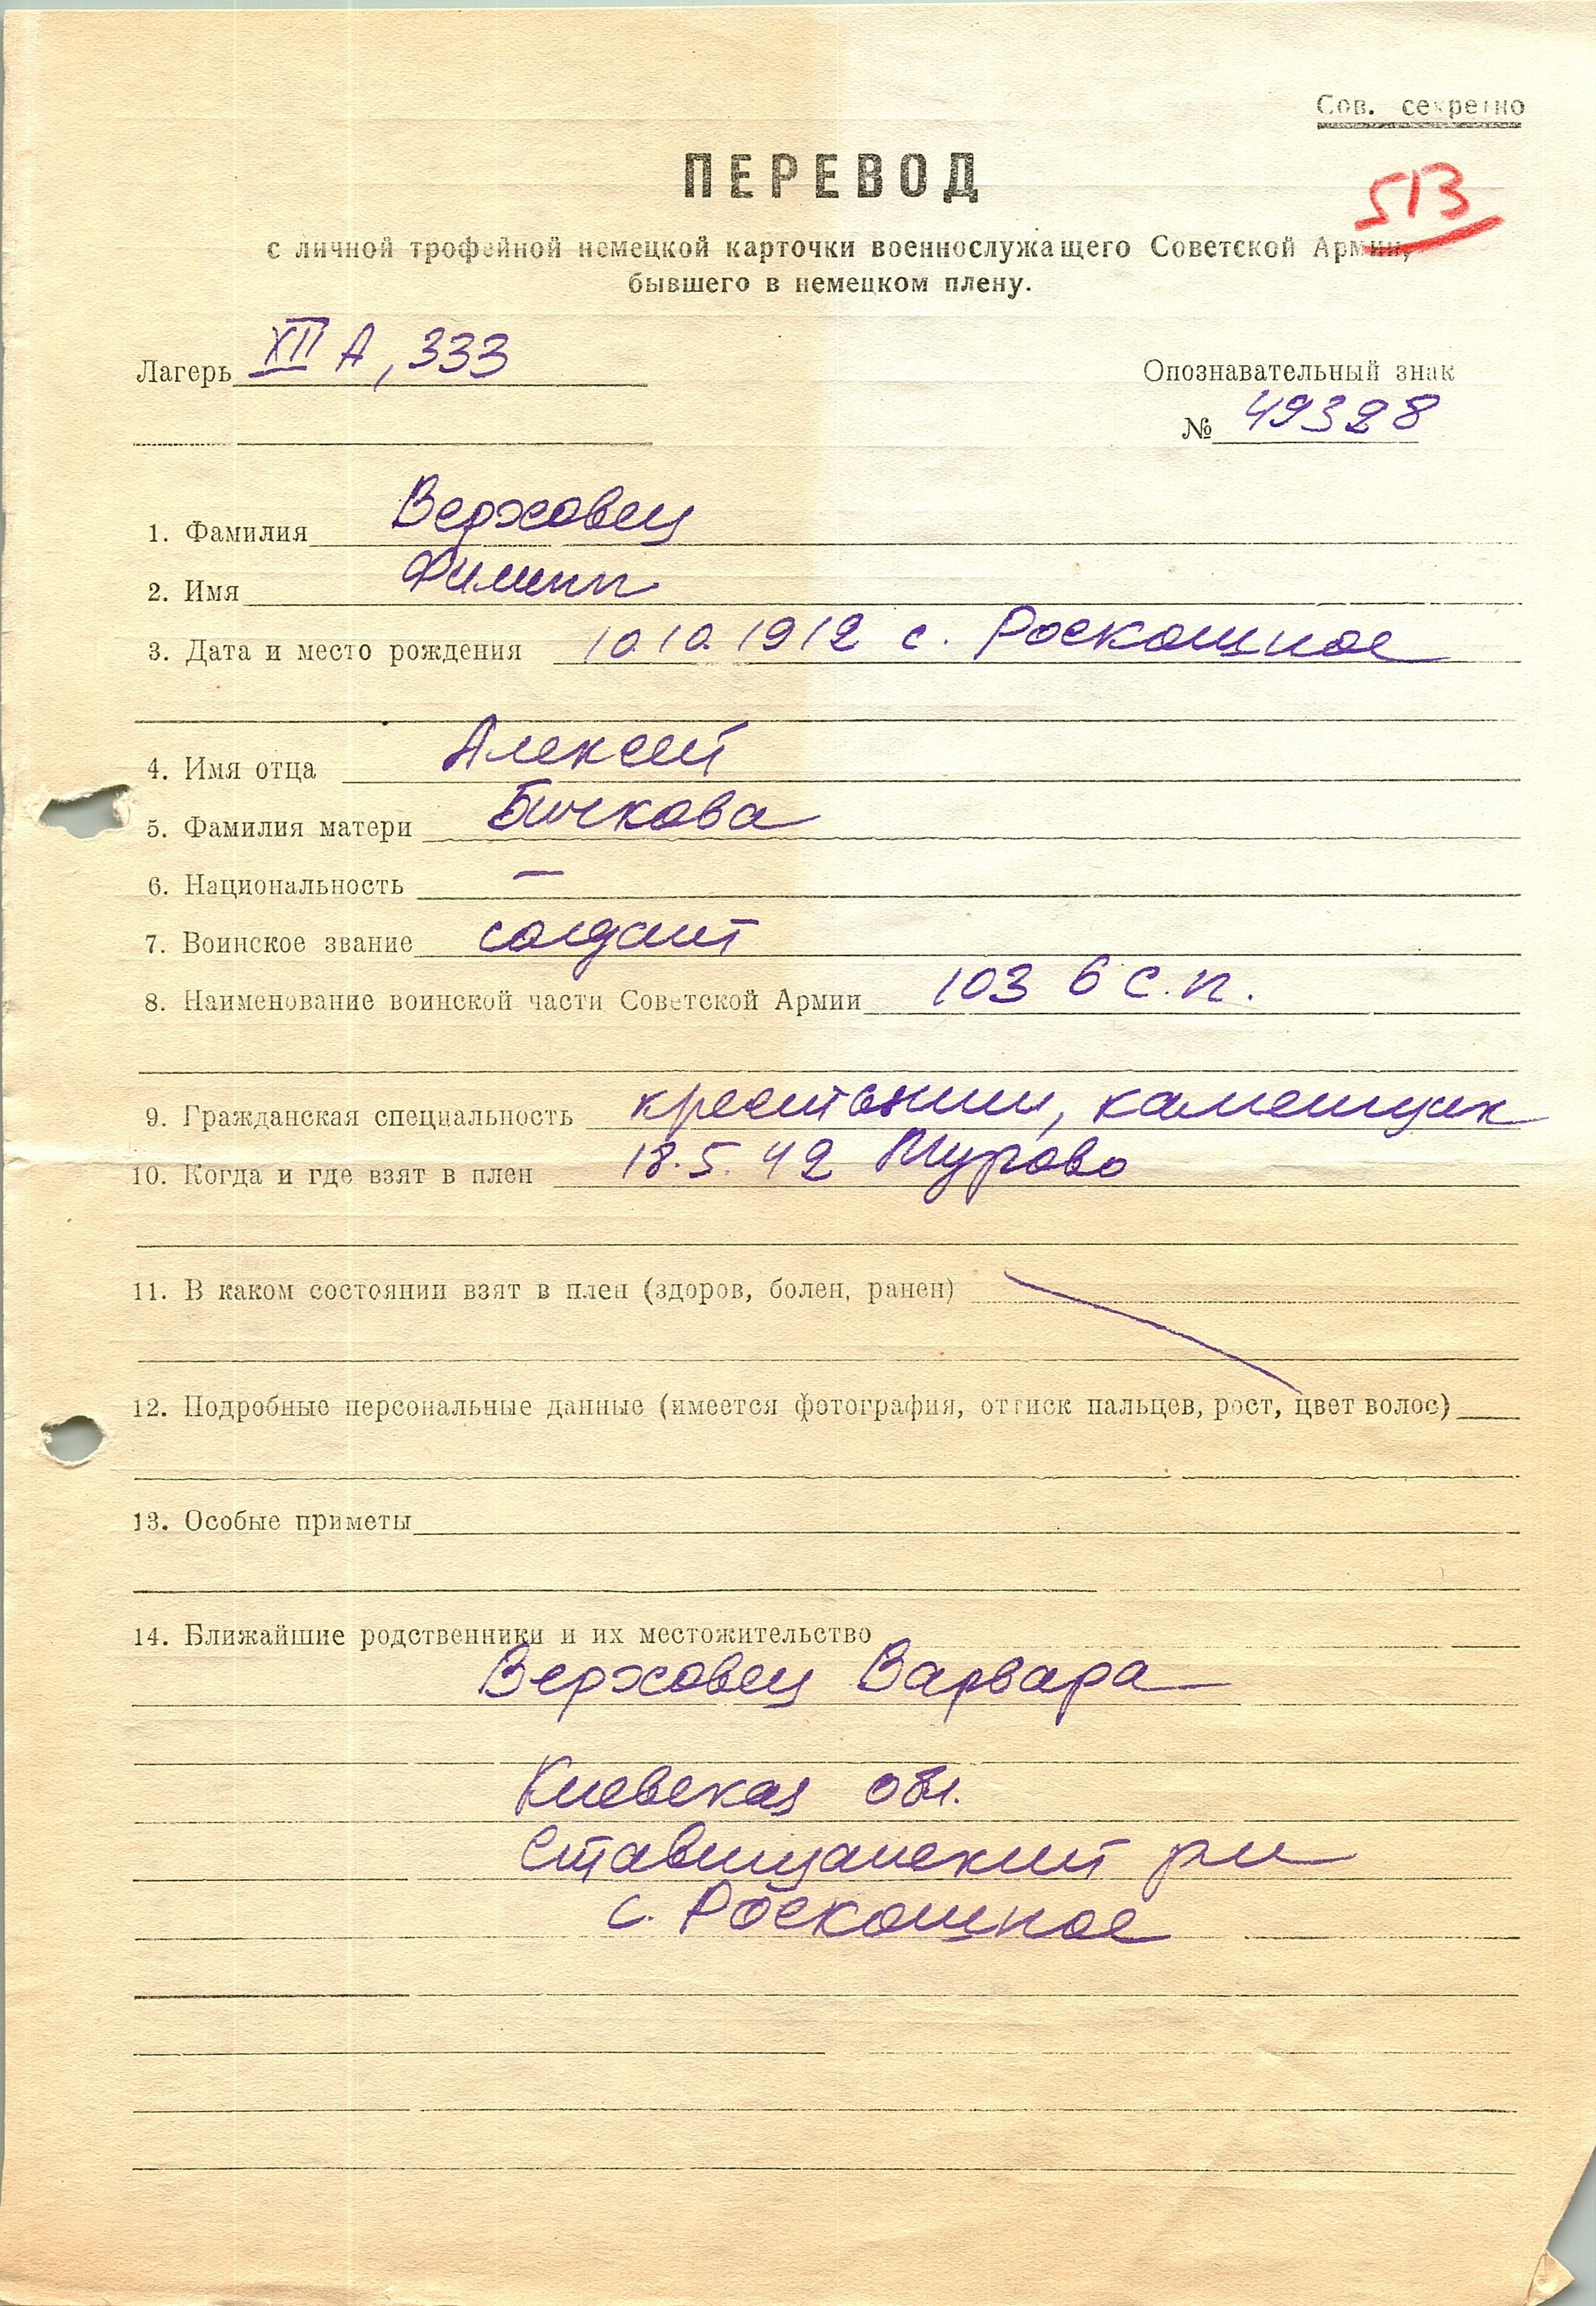 Сов. секретно
ПЕРЕВОД
513
с личной трофейной немецкой карточки военнослужащего Советской Армии,
бывшего в немецком плену.
Лагерь XII A, 333
Опознавательный знак
№ 49328
1. Фамилия Верховец
2. Имя Филипп
3. Дата и место рождения 10.10.1912 с. Роскошное
4. Имя отца Алексей
5. Фамилия матери Бичкова
6. Национальность —
7. Воинское звание солдат
8. Наименование воинской части Советской Армии 103 б с.п.
9. Гражданская специальность крестьянин, каменщик
10. Когда и где взят в плен 18.5.42
11. В каком состоянии взят в плен (здоров, болен, ранен)
12. Подробные персональные данные (имеется фотография, оттиск пальцев, рост, цвет волос)
13. Особые приметы
14. Ближайшие родственники и их местожительство
Верховец Варвара
Киевская обл.
Ставищанский рн
с. Роскошное